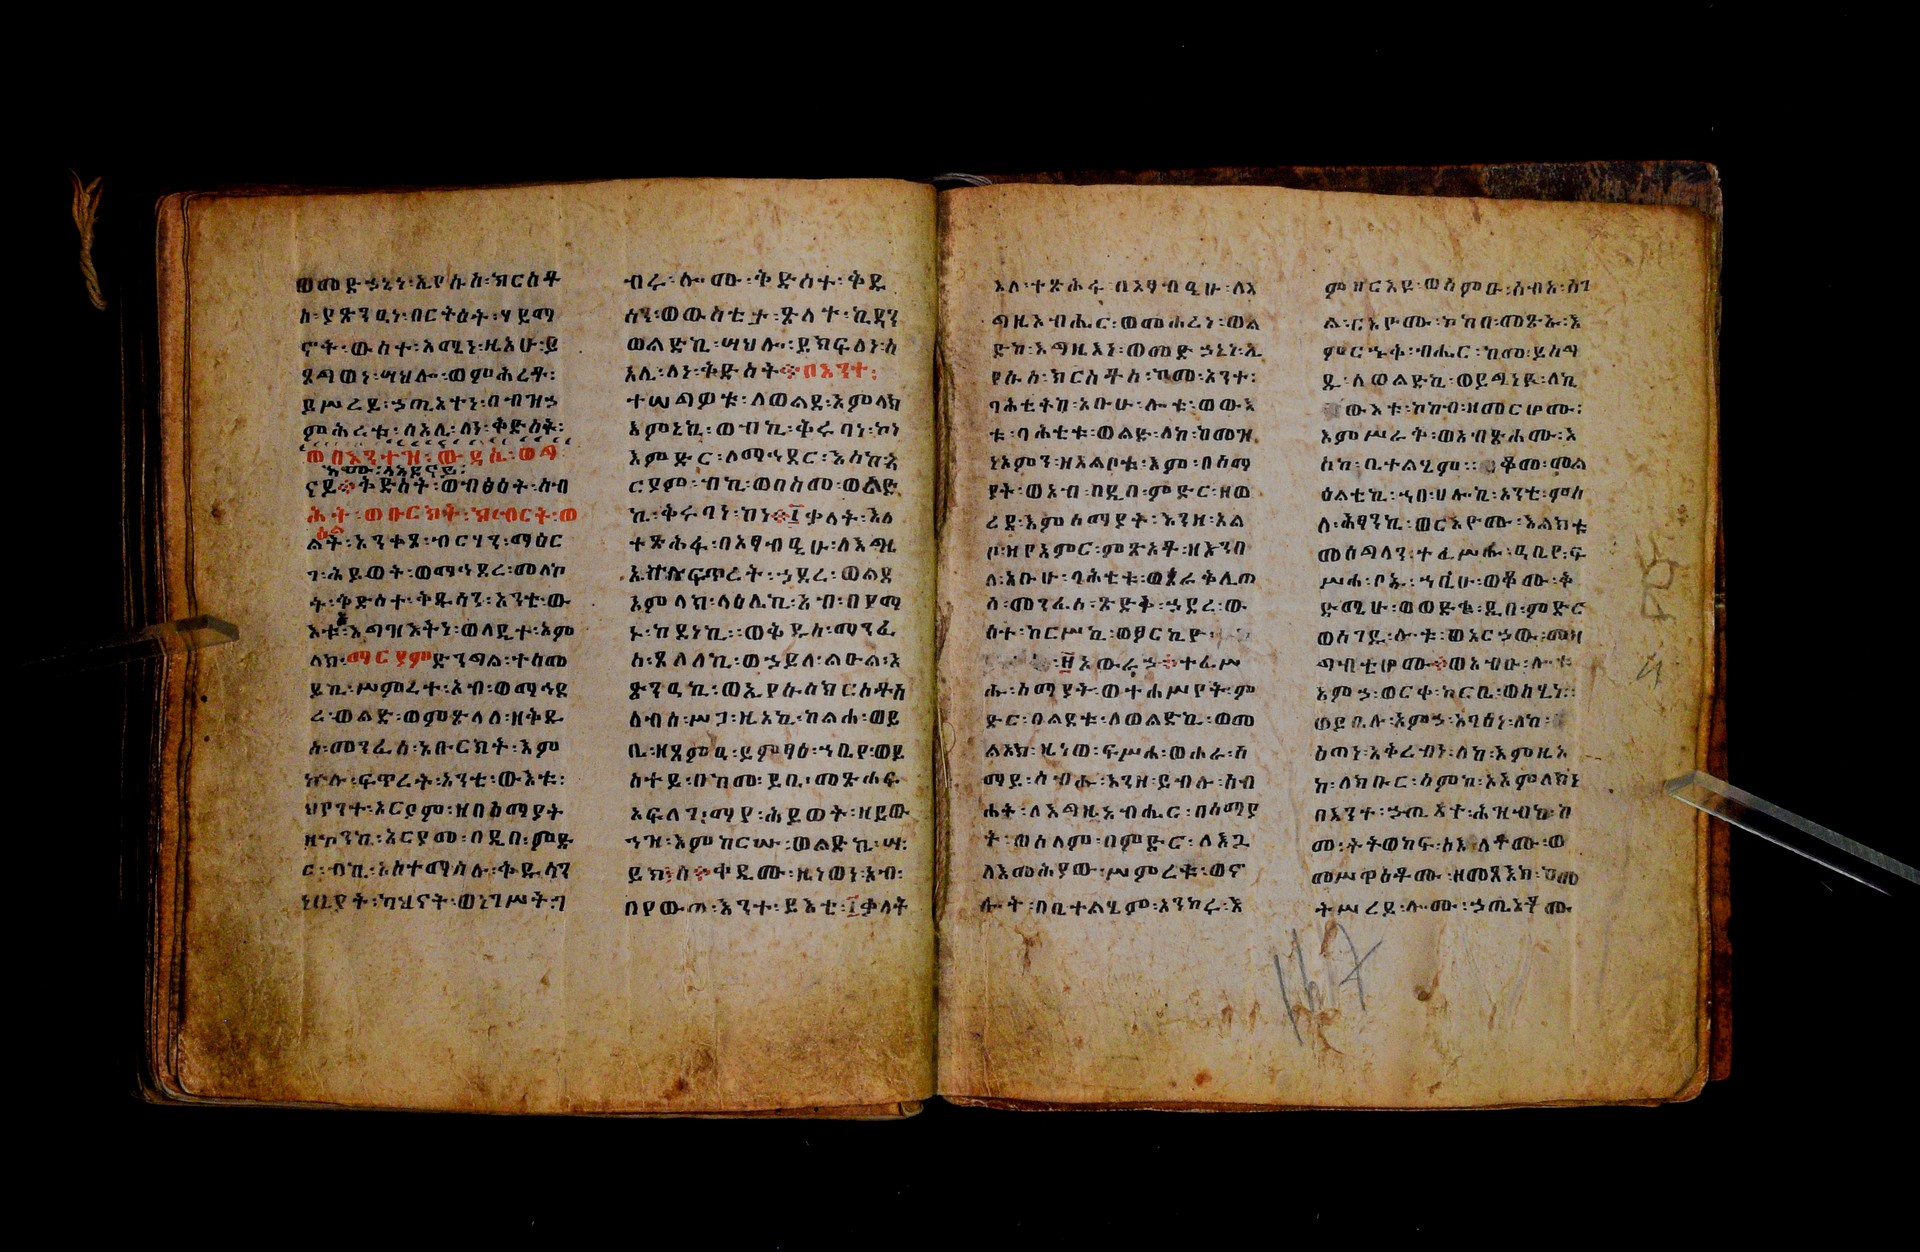 ወመድኃኒነ፡ኢየሱስ፡ክርስቶ
ስ፡ያጽንዒነ፡በርትዕት፡ሃይማ
ኖት፡ውስተ፡አሚን፡ዚአሁ፡ይ
ጸጋወነ፡ሣህሎ፡ወምሕረቶ፡
ይሥረይ፡ኃጢአተነ፡በብዝኃ
ምሕረቱ፡ሰአሊ፡ለነ፡ቅድስት፡
ወበእንተዝ፡ውዳሴ፡ወዳ
ናይ፡ቅድስት፡ወብፅዕት፡ስብ
ሕት፡ወቡርክት፡ክብርት፡ወ
ልት፡አንቀጸ፡ብርሃን፡ማዕር
ገ፡ሕይወት፡ወማኅደረ፡መለኮ
ት፡ቅድስተ፡ቅዱሳን፡አንቲ፡ው
እቱ፡እግዝእትነ፡ወላዲተ፡አም
ላክ፡ማርያም፡ድንግል፡ተሰመ
ይኪ፡ሥምረተ፡አብ፡ወማኅደ
ረ፡ወልድ፡ወምጽላለ፡ዘቅዱ
ስ፡መንፈስ፡ኦቡርክት፡እም
ኵሉ፡ፍጥረት፡አንቲ፡ውእቱ፡
ህየንተ፡አርያም፡ዘበሰማያት
ዘኮንኪ፡አርያመ፡በዲበ፡ምድ
ር፡ብኪ፡አስተማሰሉ፡ቅዱሳን
ነቢያት፡ካህናት፡ወነገሥት፡ገ
ብሩ፡ሎሙ፡ቅድስተ፡ቅዱ
ሳን፡ወውስቲታ፡ጽላተ፡ኪዳን
ወልድኪ፡ሣህሎ፡ይክፍለነ፡ሰ
አሊ፡ለነ፡ቅድስት፡በእንተ፡
ተሠግዎቱ፡ለወልደ፡አምላክ
እምኔኪ፡ወብኪ፡ቅሩባነ፡ኮነ
እምድር፡ለማኅደር፡እስከ፡
ርያም፡ብኪ፡ወበስመ፡ወልድ
ኪ፡ቅሩባነ፡ከነ፡፲ቃላት፡እለ
ተጽሕፋ፡በአፃብዒሁ፡ለእግዚ
እ፡እምኵሉ፡ፍጥረት፡ኃደረ፡ወልደ
አምላክ፡ላዕሌኪ፡አብ፡በየማ
ኑ፡ከደነኪ፡፡ወቅዱስ፡መንፈ
ስ፡ጸለለኪ፡ወኃይለ፡ልዑል፡አ
ጽንዓኪ፡ወኢየሱስ፡ክርስቶስ
ሰብሰ፡ሥጋ፡ዚአኪ፡ከልሐ፡ወይ
ቤ፡ዘጸምዓ፡ይምፃዕ፡ኀቤየ፡ወይ
ስተይ፡በከመ፡ይቤ፡መጽሐፍ
አፍላገ፡ማየ፡ሕይወት፡ዘይው
ኅዝ፡እምከርሡ፡ወልድኪ፡ሣ፡
ይክ፡ሰ፡ቀዲሙ፡ዜነወነ፡አብ፡
በየውጣ፡እንተ፡ይእቲ፡፲ቃላት
እለ፡ተጽሕፋ፡በአፃብዒሁ፡ለእ
ግዚአብሔር፡ወመሐረነ፡ወል
ድከ፡እግዚእነ፡ወመድኃኒነ፡ኢ
የሱስ፡ክርስቶስ፡ከመ፡አንተ፡
ባሕቲትከ፡አቡሁ፡ሎቱ፡ወውእ
ቱ፡ባሕቲቱ፡ወልድ፡ለከ፡ከመዝ
ነአምን፡ዘእልቦቱ፡እም፡በሰማ
ያት፡ወአብ፡በዲበ፡ምድር፡ዘወ
ረደ፡እምሰማያት፡እንዘ፡አል
ቦ፡ዘየአምር፡ምጽአቶ፡ዘእንበ
ለ፡አቡሁ፡ባሕቲቱ፡ወጰራቅሊጦ
ስ፡መንፈስ፡ጽድቅ፡ኃደረ፡ው
ስተ፡ከርሥኪ፡ወፆርኪዮ
፱አውራኃ፡ተፈሥ
ሑ፡ሰማያት፡ወተሐሥየት፡ም
ድር፡በልደቱ፡ለወልድኪ፡ወመ
ልአክ፡ዜነወ፡ፍሥሐ፡ወሐራ፡ሰ
ማይ፡ሰብሑ፡እንዘ፡ይብሉ፡ስብ
ሐት፡ለእግዚአብሔር፡በሰማያ
ት፡ወሰላም፡በምድር፡ለእጓ
ለእመሕያው፡ሥምረቱ፡ወኖ
ሎት፡በቤተልሄም፡አንከሩ፡እ
ምዘርእዩ፡ወሰምዑ፡ሰብአ፡ሰገ
ል፡ርእዮሙ፡ኮከበ፡መጽኡ፡እ
ምርኁቅ፡ብሔር፡ከመ፡ይስግ
ዱ፡ለወልድኪ፡ወይጋነዩ፡ለኪ
ውእቱ፡ኮከብ፡ዘመርሆሙ፡
እምሥራቅ፡ወአብጽሐሙ፡እ
ስከ፡ቤተልሄም፡፡ቆመ፡መል
ዕልቴኪ፡ኀበ፡ሀሎኪ፡አንቲ፡ምስ
ለ፡ሕፃንኪ፡ወርእዮሙ፡እልክቱ
መሰግላን፡ተፈሥሑ፡ዓቢየ፡ፍ
ሥሐ፡ቦኡ፡ኀቤሁ፡ወቆሙ፡ቅ
ድሜሁ፡ወወድቁ፡ዲበ፡ምድር
ወሰገዱ፡ሎቱ፡ወአርኃው፡መዛ
ግብቲሆሙ፡ወአብኡ፡ሎቱ
አምኃ፡ወርቀ፡ከርቤ፡ወስሂነ፡፡
ወይቤሉ፡አምኃ፡እንፅነ፡ለከ፡
ዕጣነ፡አቅረብነ፡ለከ፡አምዚአ
ከ፡ለክቡር፡ስምከ፡አአምላክነ
በእንተ፡ኃጢአተ፡ሕዝብከ፡ከ
መ፡ትትወከፍ፡ስእለቶሙ፡ወ
መሥዋዕቶሙ፡ዘመጽእከ፡ከመ
ትሥረይ፡ሎሙ፡ኃጢአቶሙ
147